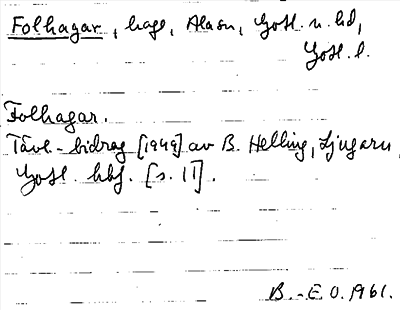 Folhagar, hage, Alasn, Gotl. n. hd,
Gotl. l.
Folhagar.
Tävl.-bidrag [1949] av B. Helling, Ljugarn
Gotl. hbf. [s. 11].
B.-E O. 1961.